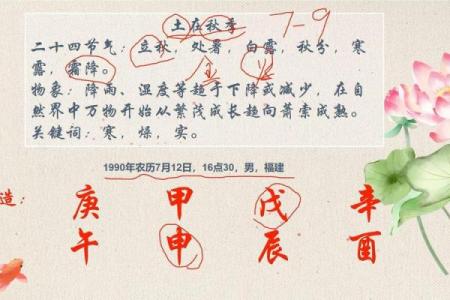 土在秋季 7-9
二十四节气：立秋，处暑，白露，秋分，寒
露，霜降。
物象：降雨、湿度等趋于下降或减少，在自
然界中万物开始从繁茂成长趋向萧索成熟。
关键词：寒，燥，实。
1990年农历7月12日，16点30，男，福建
造：
庚 甲 戊 辛
午 申 辰 酉